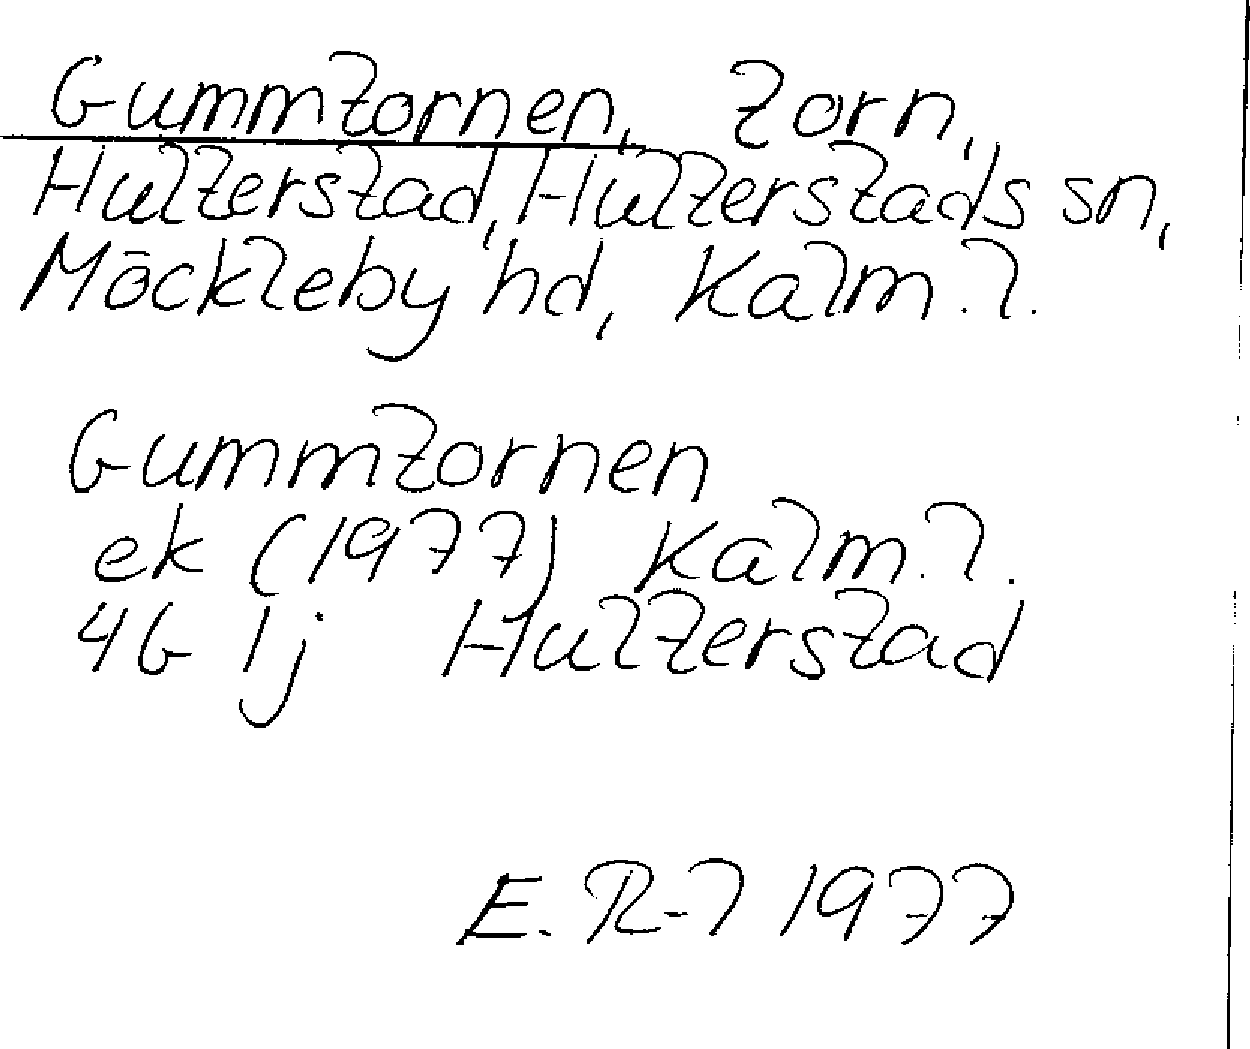 Gummtornen, torn,
Hulterstad, Hulterstads sn,
Möckleby hd, Kalm. l.
Gummtornen
ek (1977) Kalm. l.
4G 1j Hulterstad
E. R-l 1977